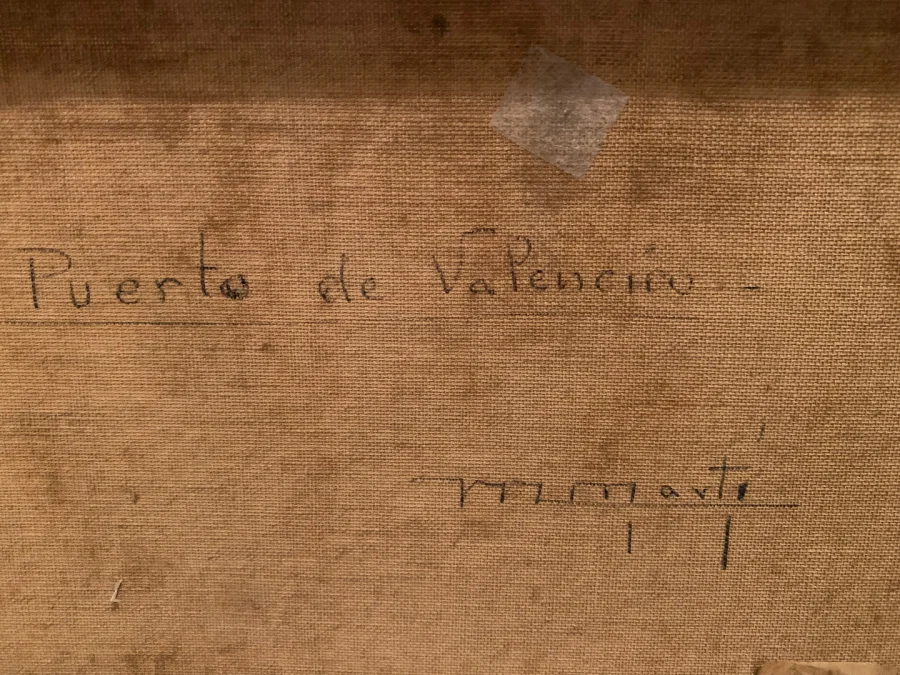 Puerto de Valencia -
m martí